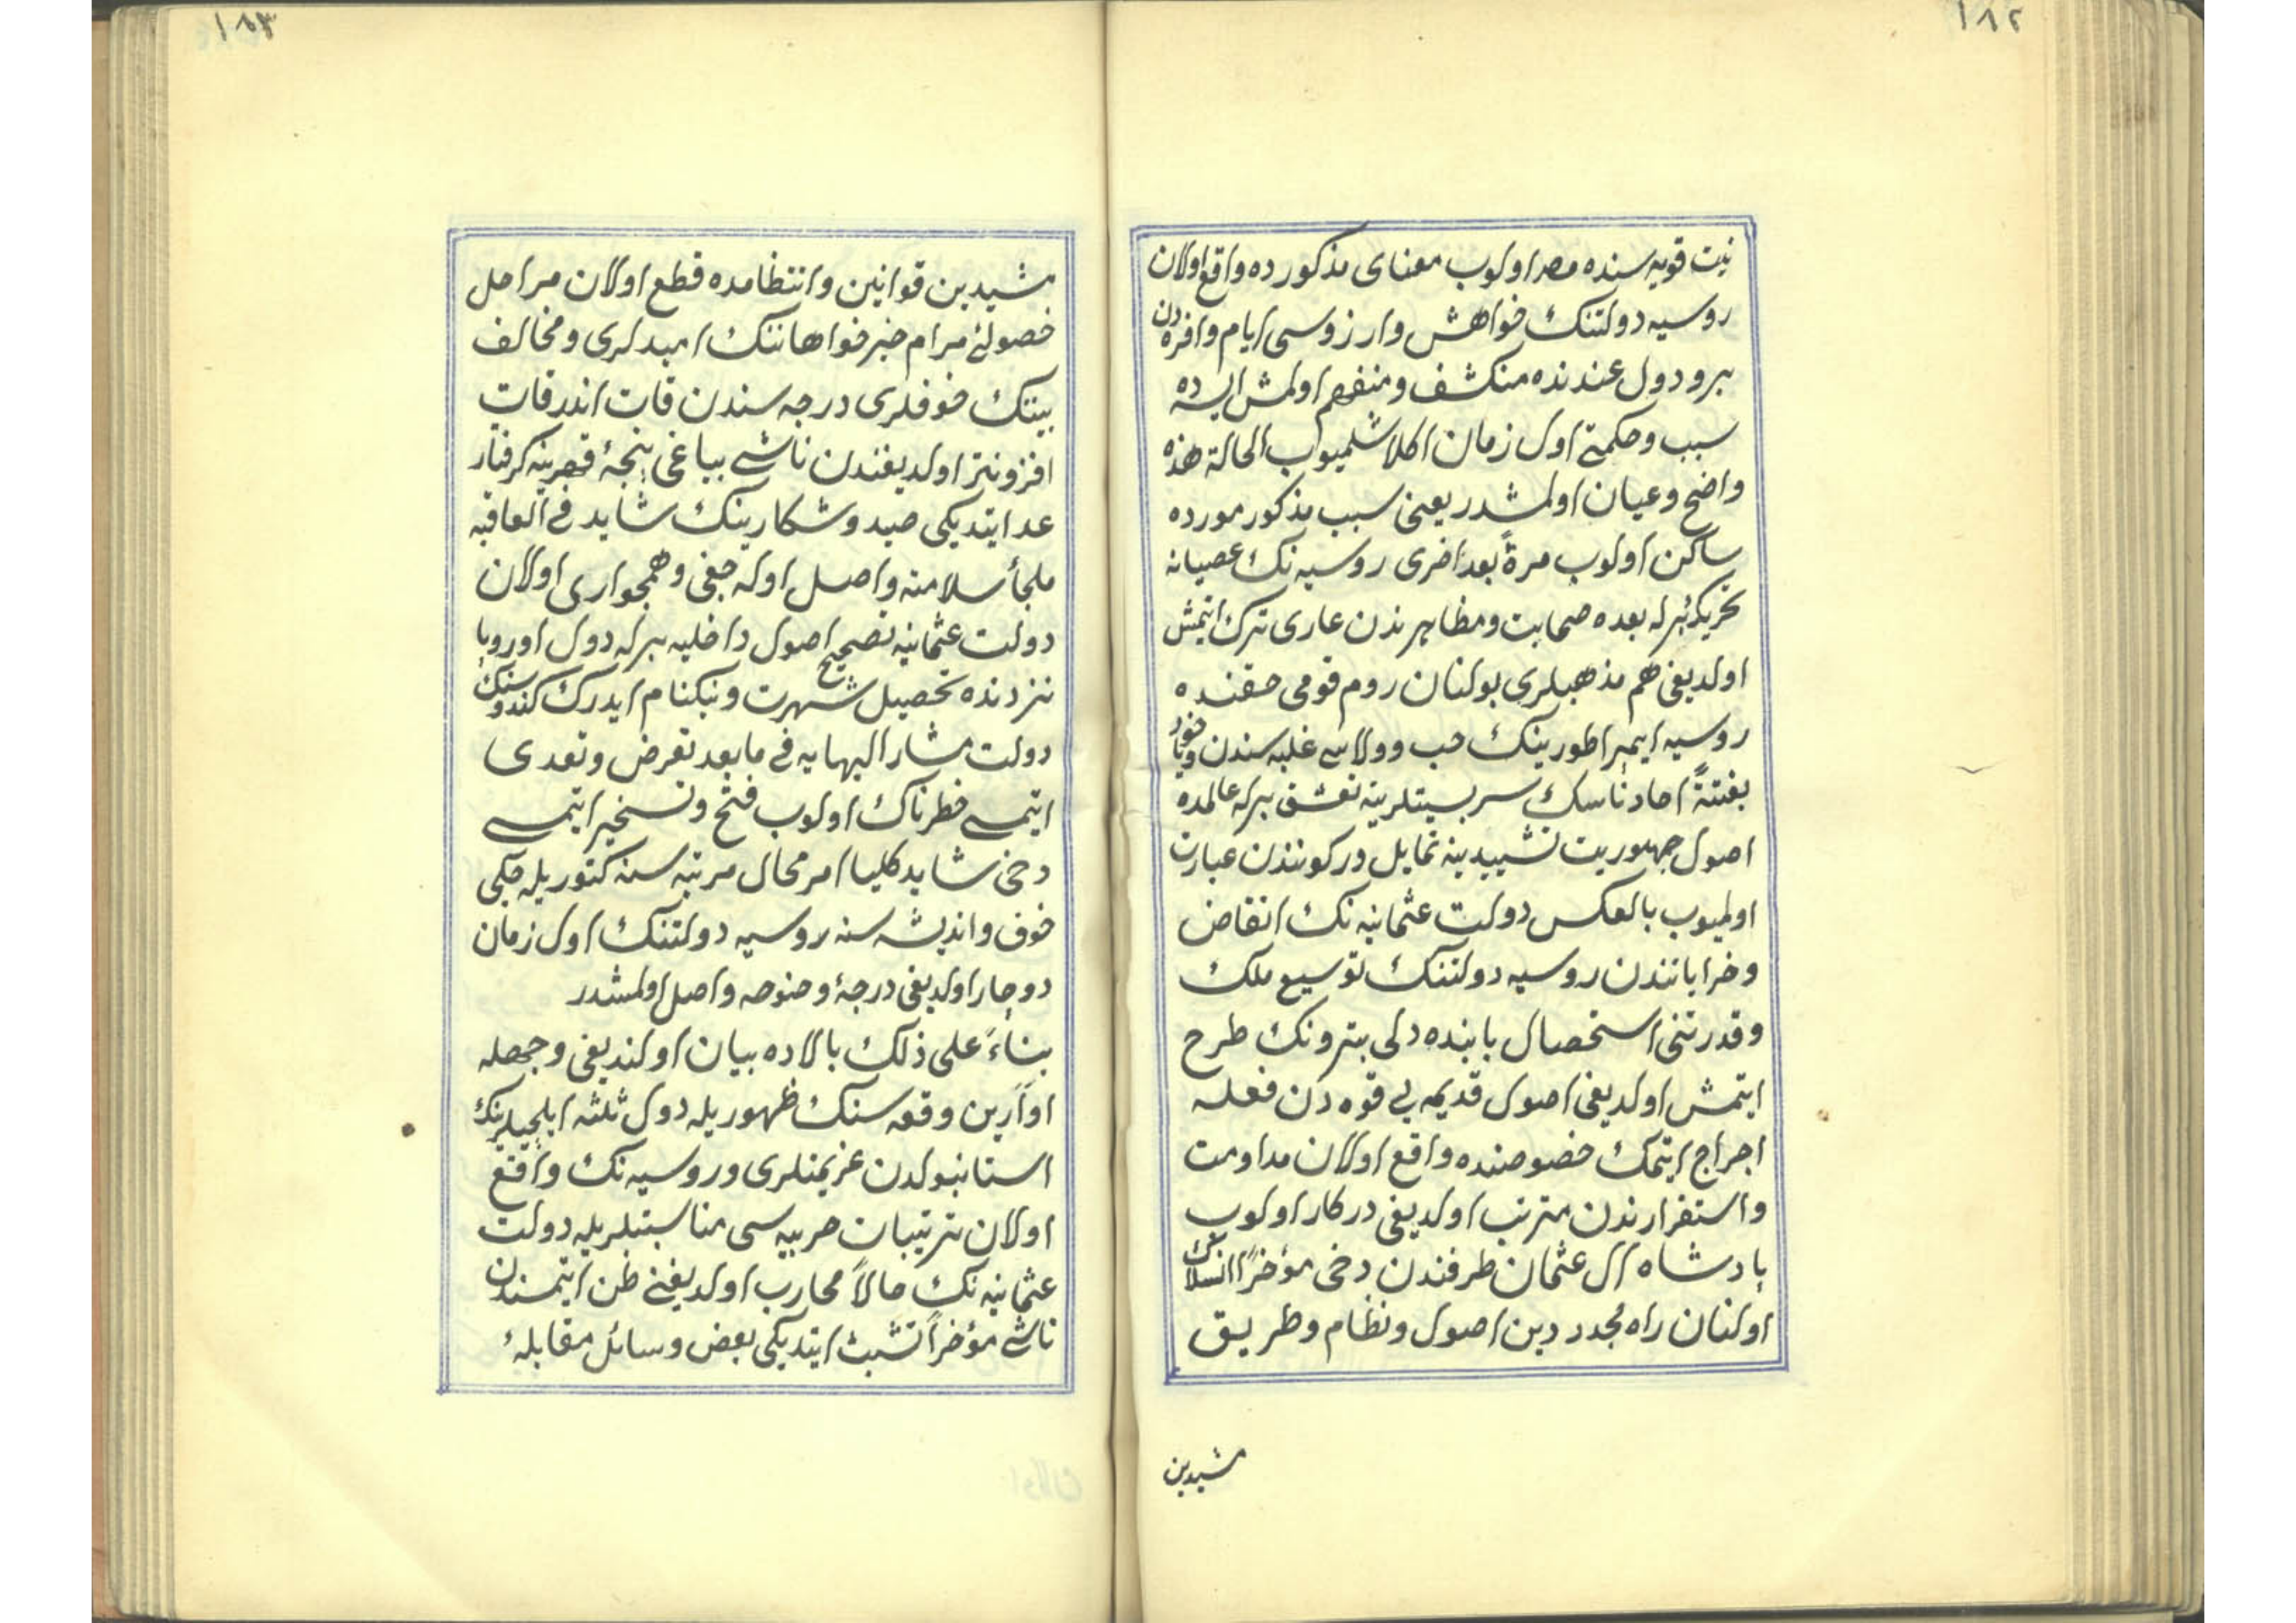 ١٨٢
نیت قویه سنده مصر اولوب معنای مذکورده واقع اولان
روسیه دولتنك خواهش وارزوسی ایام وافره دن
برو دول عندنده منکشف ومنفهم اولمش ایسه ده
سبب وحکمتی اول زمان اکلاشلمیوب الحالة هذه
واضح وعیان اولمشدر یعنی سبب مذکور موره ده
ساکن اولوب مرةً بعد اخری روسیه نك عصیانه
تحریکیله بعده صحابت ومظاهرتدن عاری ترك ایتمش
اولدیغی هم مذهبلری بولنان روم قومی حقنده
روسیه ایمپراطورینك حب وولاسی غلبه سندن ویاخود
بغتةً احاد ناسك سربستیلرینه تعشق برله عالمده
اصول جمهوریت تشییدینه تمایل درکونندن عبارت
اولمیوب بالعکس دولت عثمانیه نك انقاض
وخراباتندن روسیه دولتنك توسیع ملك
وقدرتنی استحصال بابنده دلی پترونك طرح
ایتمش اولدیغی اصول قدیمه یی قوه دن فعله
اخراج ایتمك خصوصنده واقع اولان مداومت
واستقرارندن مترتب اولدیغی درکار اولوب
پادشاه ال عثمان طرفندن دخی مؤخراً انسلاك
اولنان راه مجدد دین اصول ونظام وطریق
مشیدین
١٨٣
مشیدین قوانین وانتظامده قطع اولان مراحل
حصولیٔ مرام خیرخواهاننك امیدلری ومخالف
بیننك خوفلری درجه سندن قات اندر قات
افزونتر اولدیغندن ناشی بیاغی پنجهٔ قهرینه کرفتار
عد ایتدیکی صید وشکارینك شاید فی العاقبه
ملجأ سلامته واصل اوله جغی وهمجواری اولان
دولت عثمانیه تصحیح اصول داخلیه برله دول اوروپا
نزدنده تحصیل شهرت ونیکنام ایدرك کندوسنك
دولت مشار الیهایه فی مابعد تعرض وتعدی
ایتمسی خطرناك اولوب فتح وتسخیر ایتمسی
دخی شاید کلیا امر محال مرتبه سنه کتوریله جکی
خوف واندیشه سنه روسیه دولتنك اول زمان
دوچار اولدیغی درجهٔ وضوحه واصل اولمشدر
بناءً علی ذلك بالاده بیان اولندیغی وجهله
اوارین وقعه سنك ظهوریله دول ثلثه ایلچیلرینك
استانبولدن عزیمتلری وروسیه نك واقع
اولان ترتیبات حربیه سی مناسبتلریله دولت
عثمانیه نك حالاً محارب اولدیغنی ظن ایتمسندن
ناشی مؤخراً تشبث ایتدیکی بعض وسائل مقابلهٔ